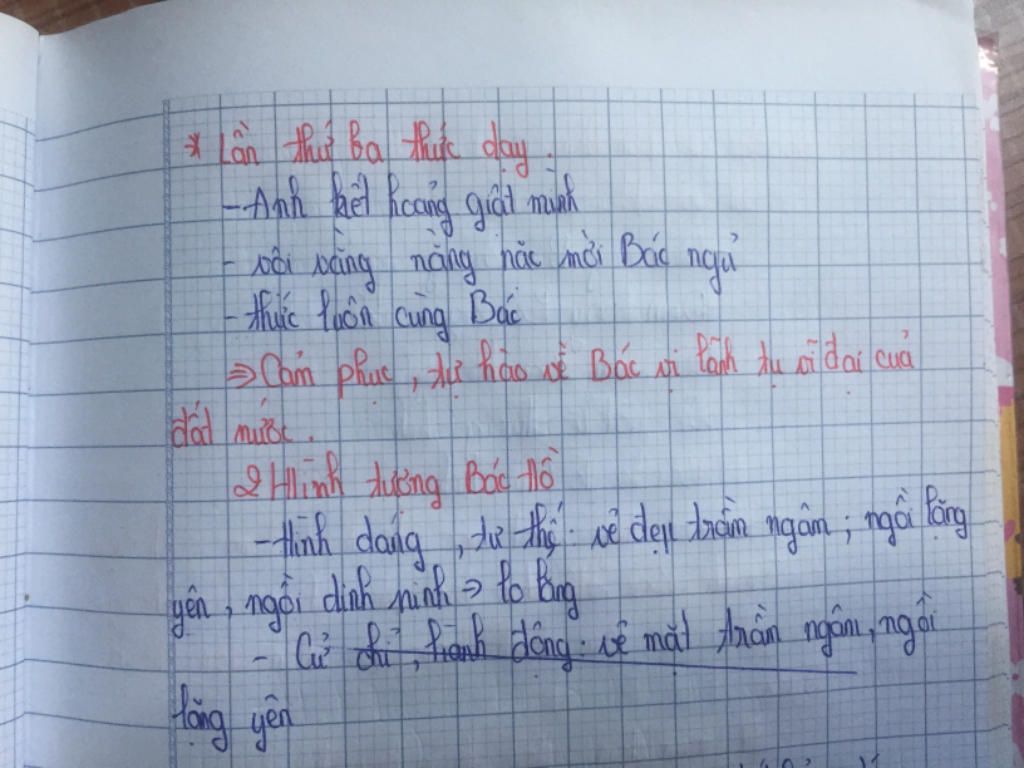 * Lần thứ ba thức dạy.
- Anh hết hoảng giật mình
- vội vàng nằng nặc mời Bác ngủ
- thức luôn cùng Bác
⇒ Cảm phục, tự hào về Bác vị lãnh tụ vĩ đại của
đất nước.
2 Hình tượng Bác Hồ
- Hình dáng, tư thế: vẻ đẹp trầm ngâm; ngồi lặng
yên, ngồi dinh ninh ⇒ lo lắng
- Cử chỉ, hành động: vẻ mặt trầm ngâm, ngồi
lặng yên